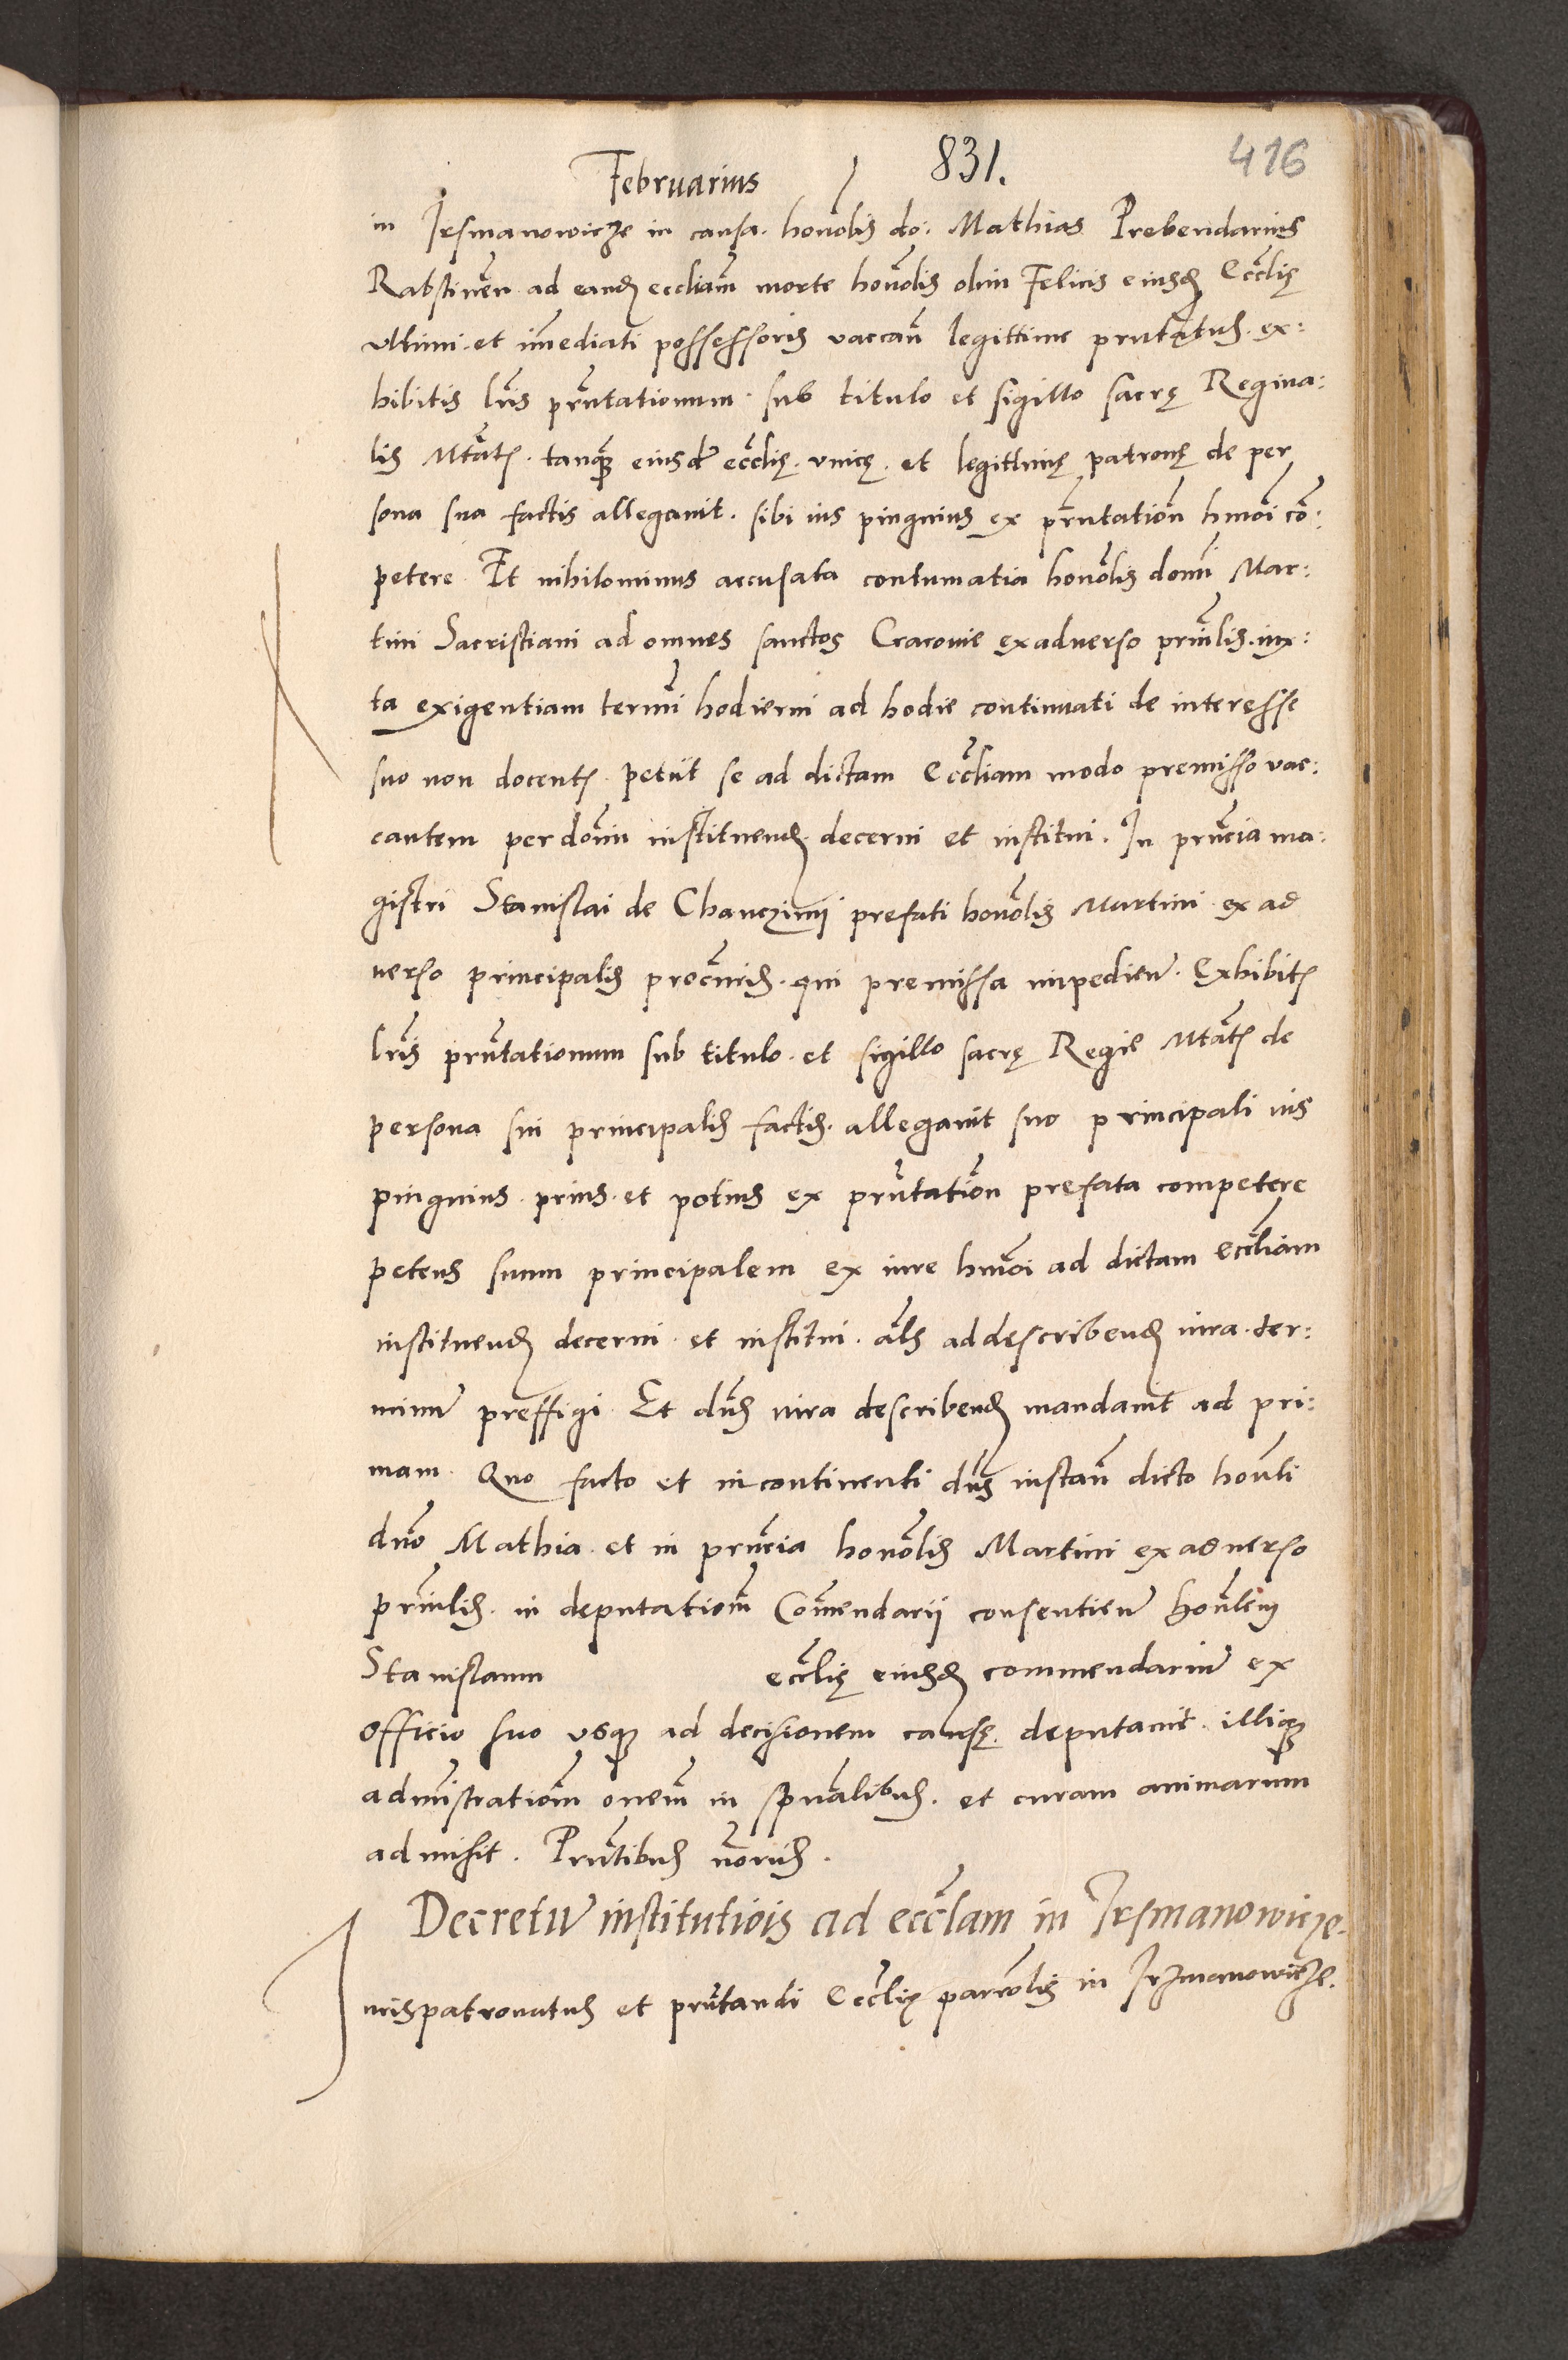 Februarius 831. 416
in Irsmanowicze in causa. honolis do: Mathias Prebendarius
Rabstinen ad eand eccliam morte honolis olim Felicis eiusd Ecclię
ultimi. et imediati possessoris vaccan legittime prntatus. ex:
hibitis lris prntationum. sub titulo et sigillo sacrę Regina:
lis Mtatis. tanqz eiusde ecclię. unicę. et legittimę patronę de per
sona sua factis allegavit. sibi ius pinguius ex prntation hmoi co:
petere. Et nihilominus accusata contumatia honolis domi Mar:
tini Sacristiani ad omnes sanctos Cracovie exadverso prinlis. iux:
ta exigentiam termi hodierni ad hodie continuati de interesse
suo non docentis. petiit se ad dictam Eccliam modo premisso vac:
cantem per domi instituend. decerni et institui. In prncia ma:
gistri Stanislai de Chanczinij prefati honolis Martini ex ad
verso principalis procuris. qui premissa impedien. Exhibitis
lris prntationum sub titulo. et sigillo sacrę Regie Mtatis de
persona sui principalis factis. allegavit suo principali ius
pinguius. prius. et potius ex prntation prefata competere
petens suum principalem ex iure hmoi ad dictam eccliam
instituend decerni. et institui. als ad describend iura. ter:
minu preffigi. Et dns iura describend mandavit ad pri:
mam. Quo facto et incontinenti dns instan dicto honli
dno Mathia. et in prncia honolis Martini ex adverso
prinlis. in deputatiom Comendarii consentien honlem
Stanislaum ecclię eiusd commendariu ex
officio suo usqz ad decisionem causę. deputavit. illiqz
admistratiom onem in spualibus. et curam animarum
admisit. Prntibus noriis.
Decretu institutiois ad ecclam in Irsmanowicze.
Iurispatronatus et prntandi Ecclię parrolis in Irzmanowicze.